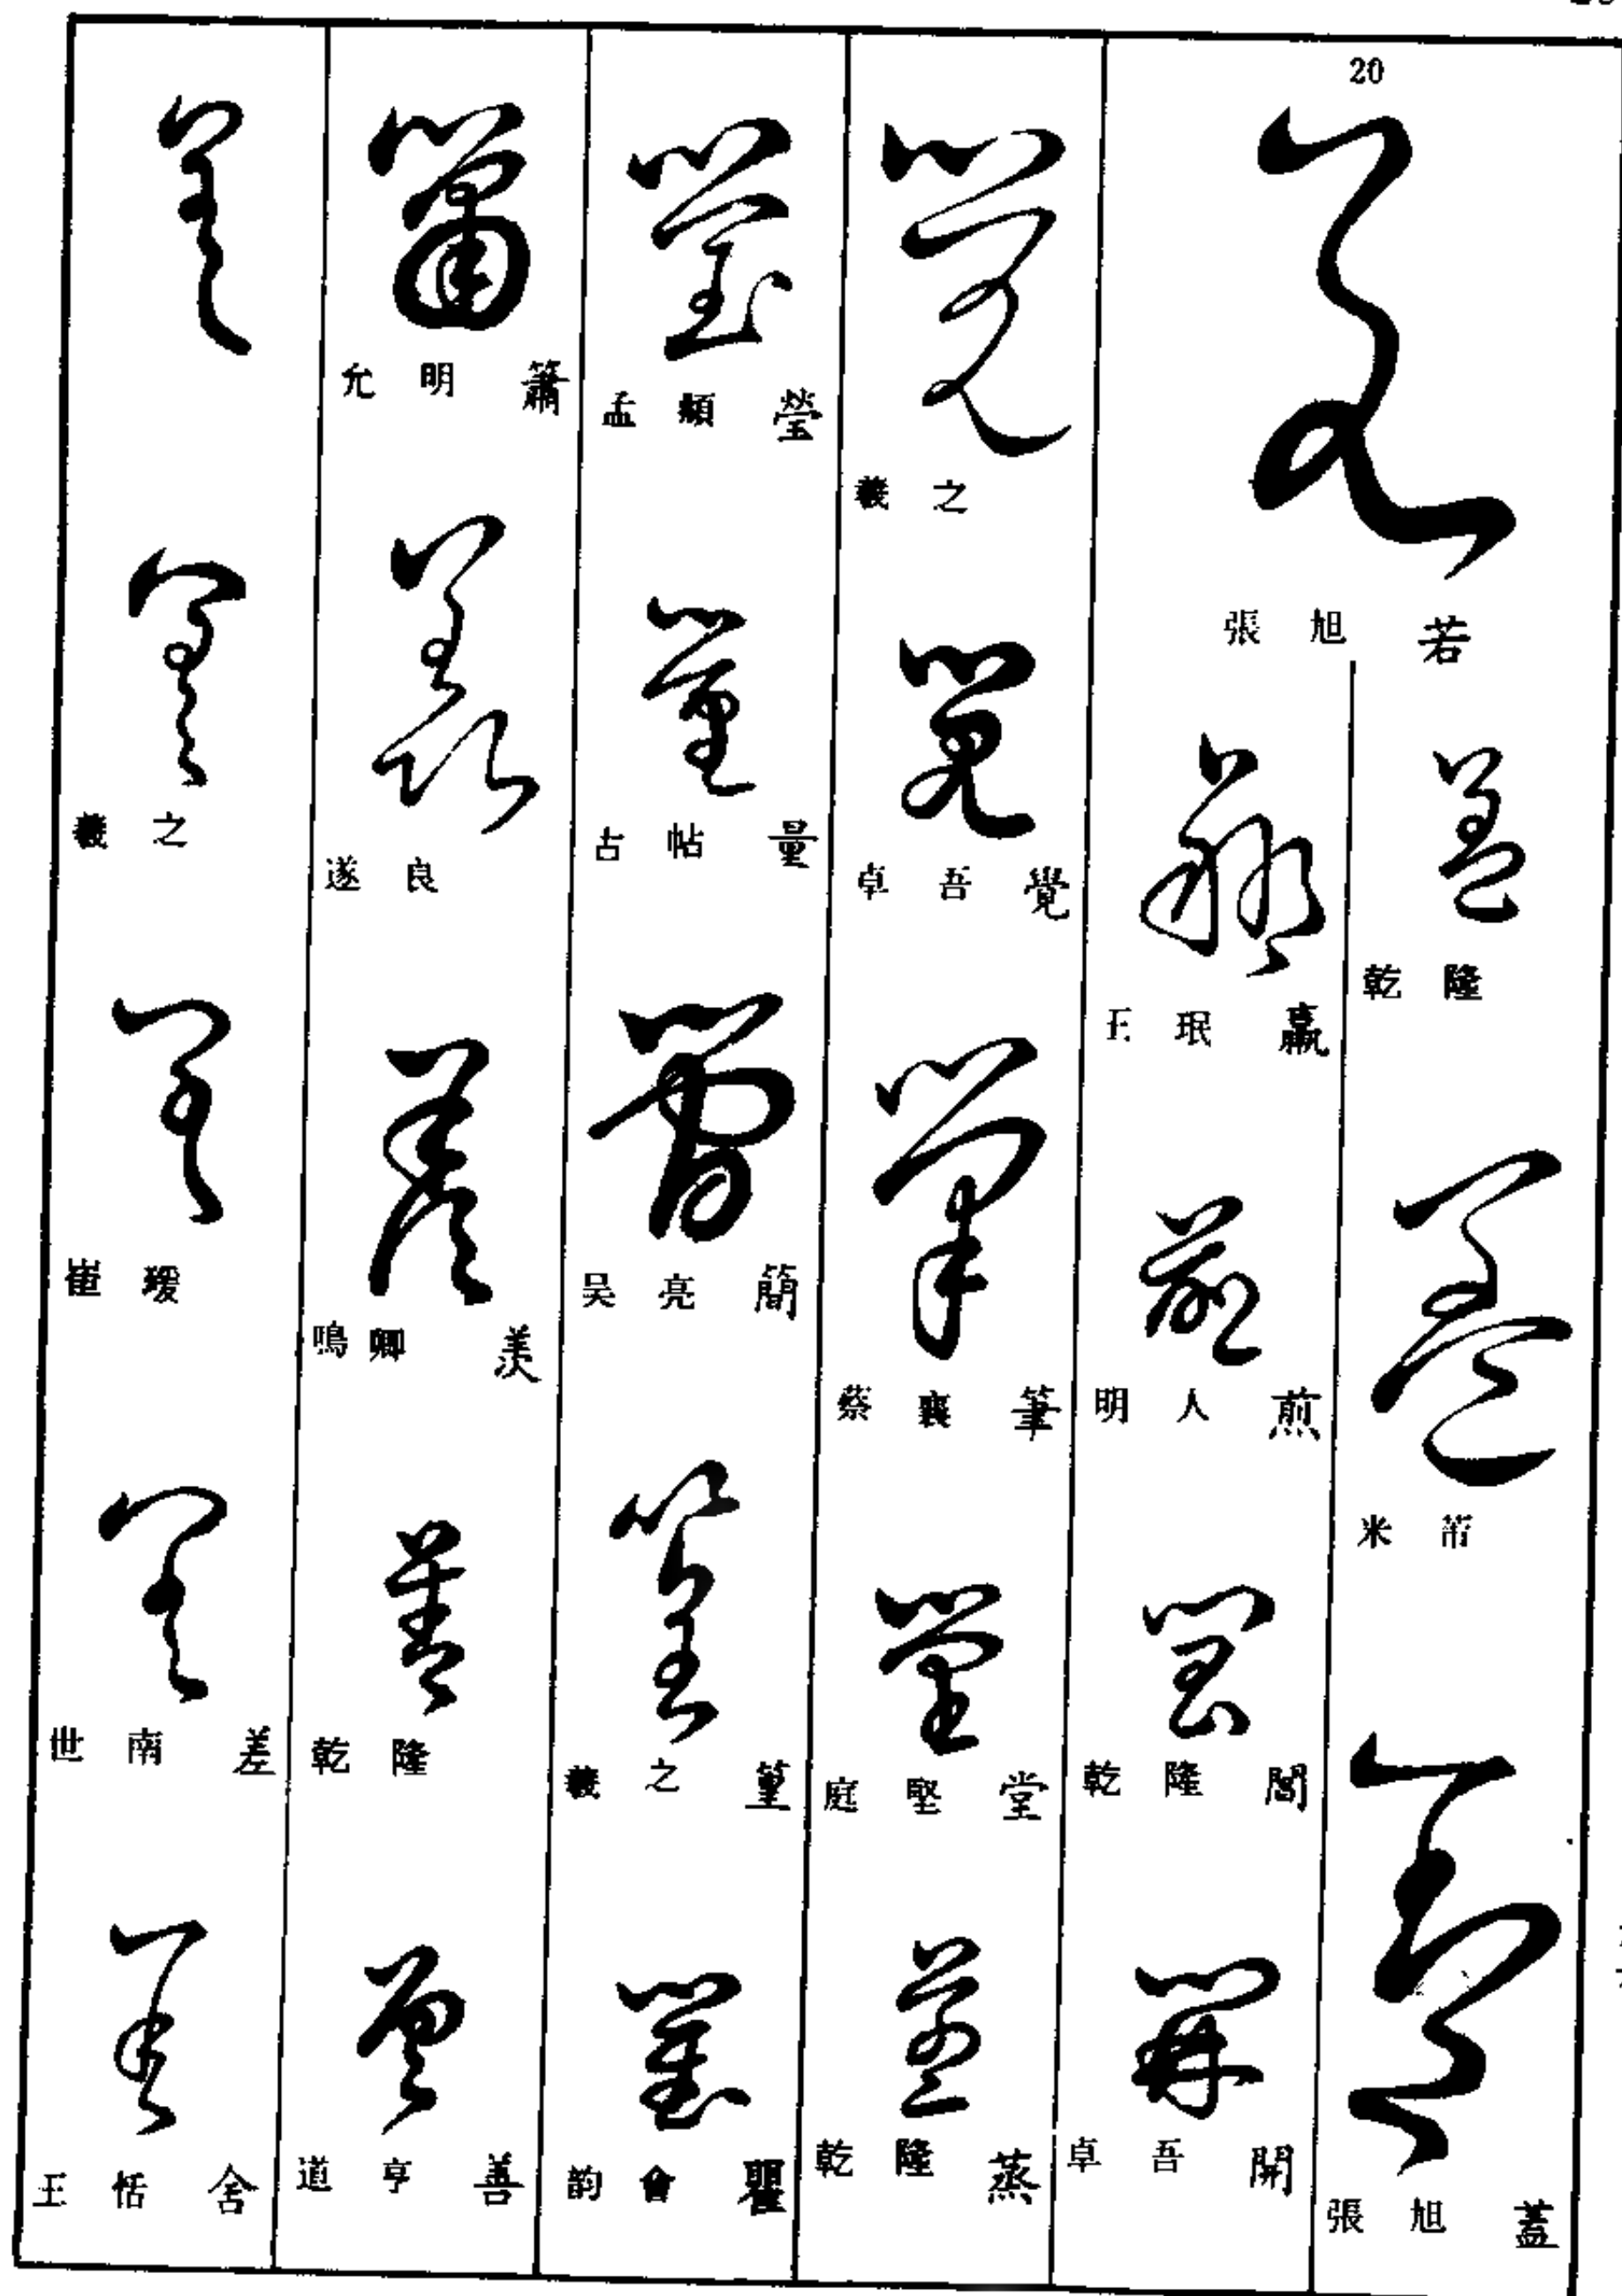 20
張旭 若
乾隆
米芾
張旭 蓋
王珉 羸
明人 煎
乾隆 閻
卓吾 開
羲之
卓吾 覺
蔡襄 筆
庭堅 堂
乾隆 蒸
孟頫 瑩
古帖 量
吴亮 簡
羲之 篁
韵會 瞿
允明 簫
遂良
鳴卿 羨
乾隆
道亨 善
羲之
崔瑗
世南 差
王恬 舍